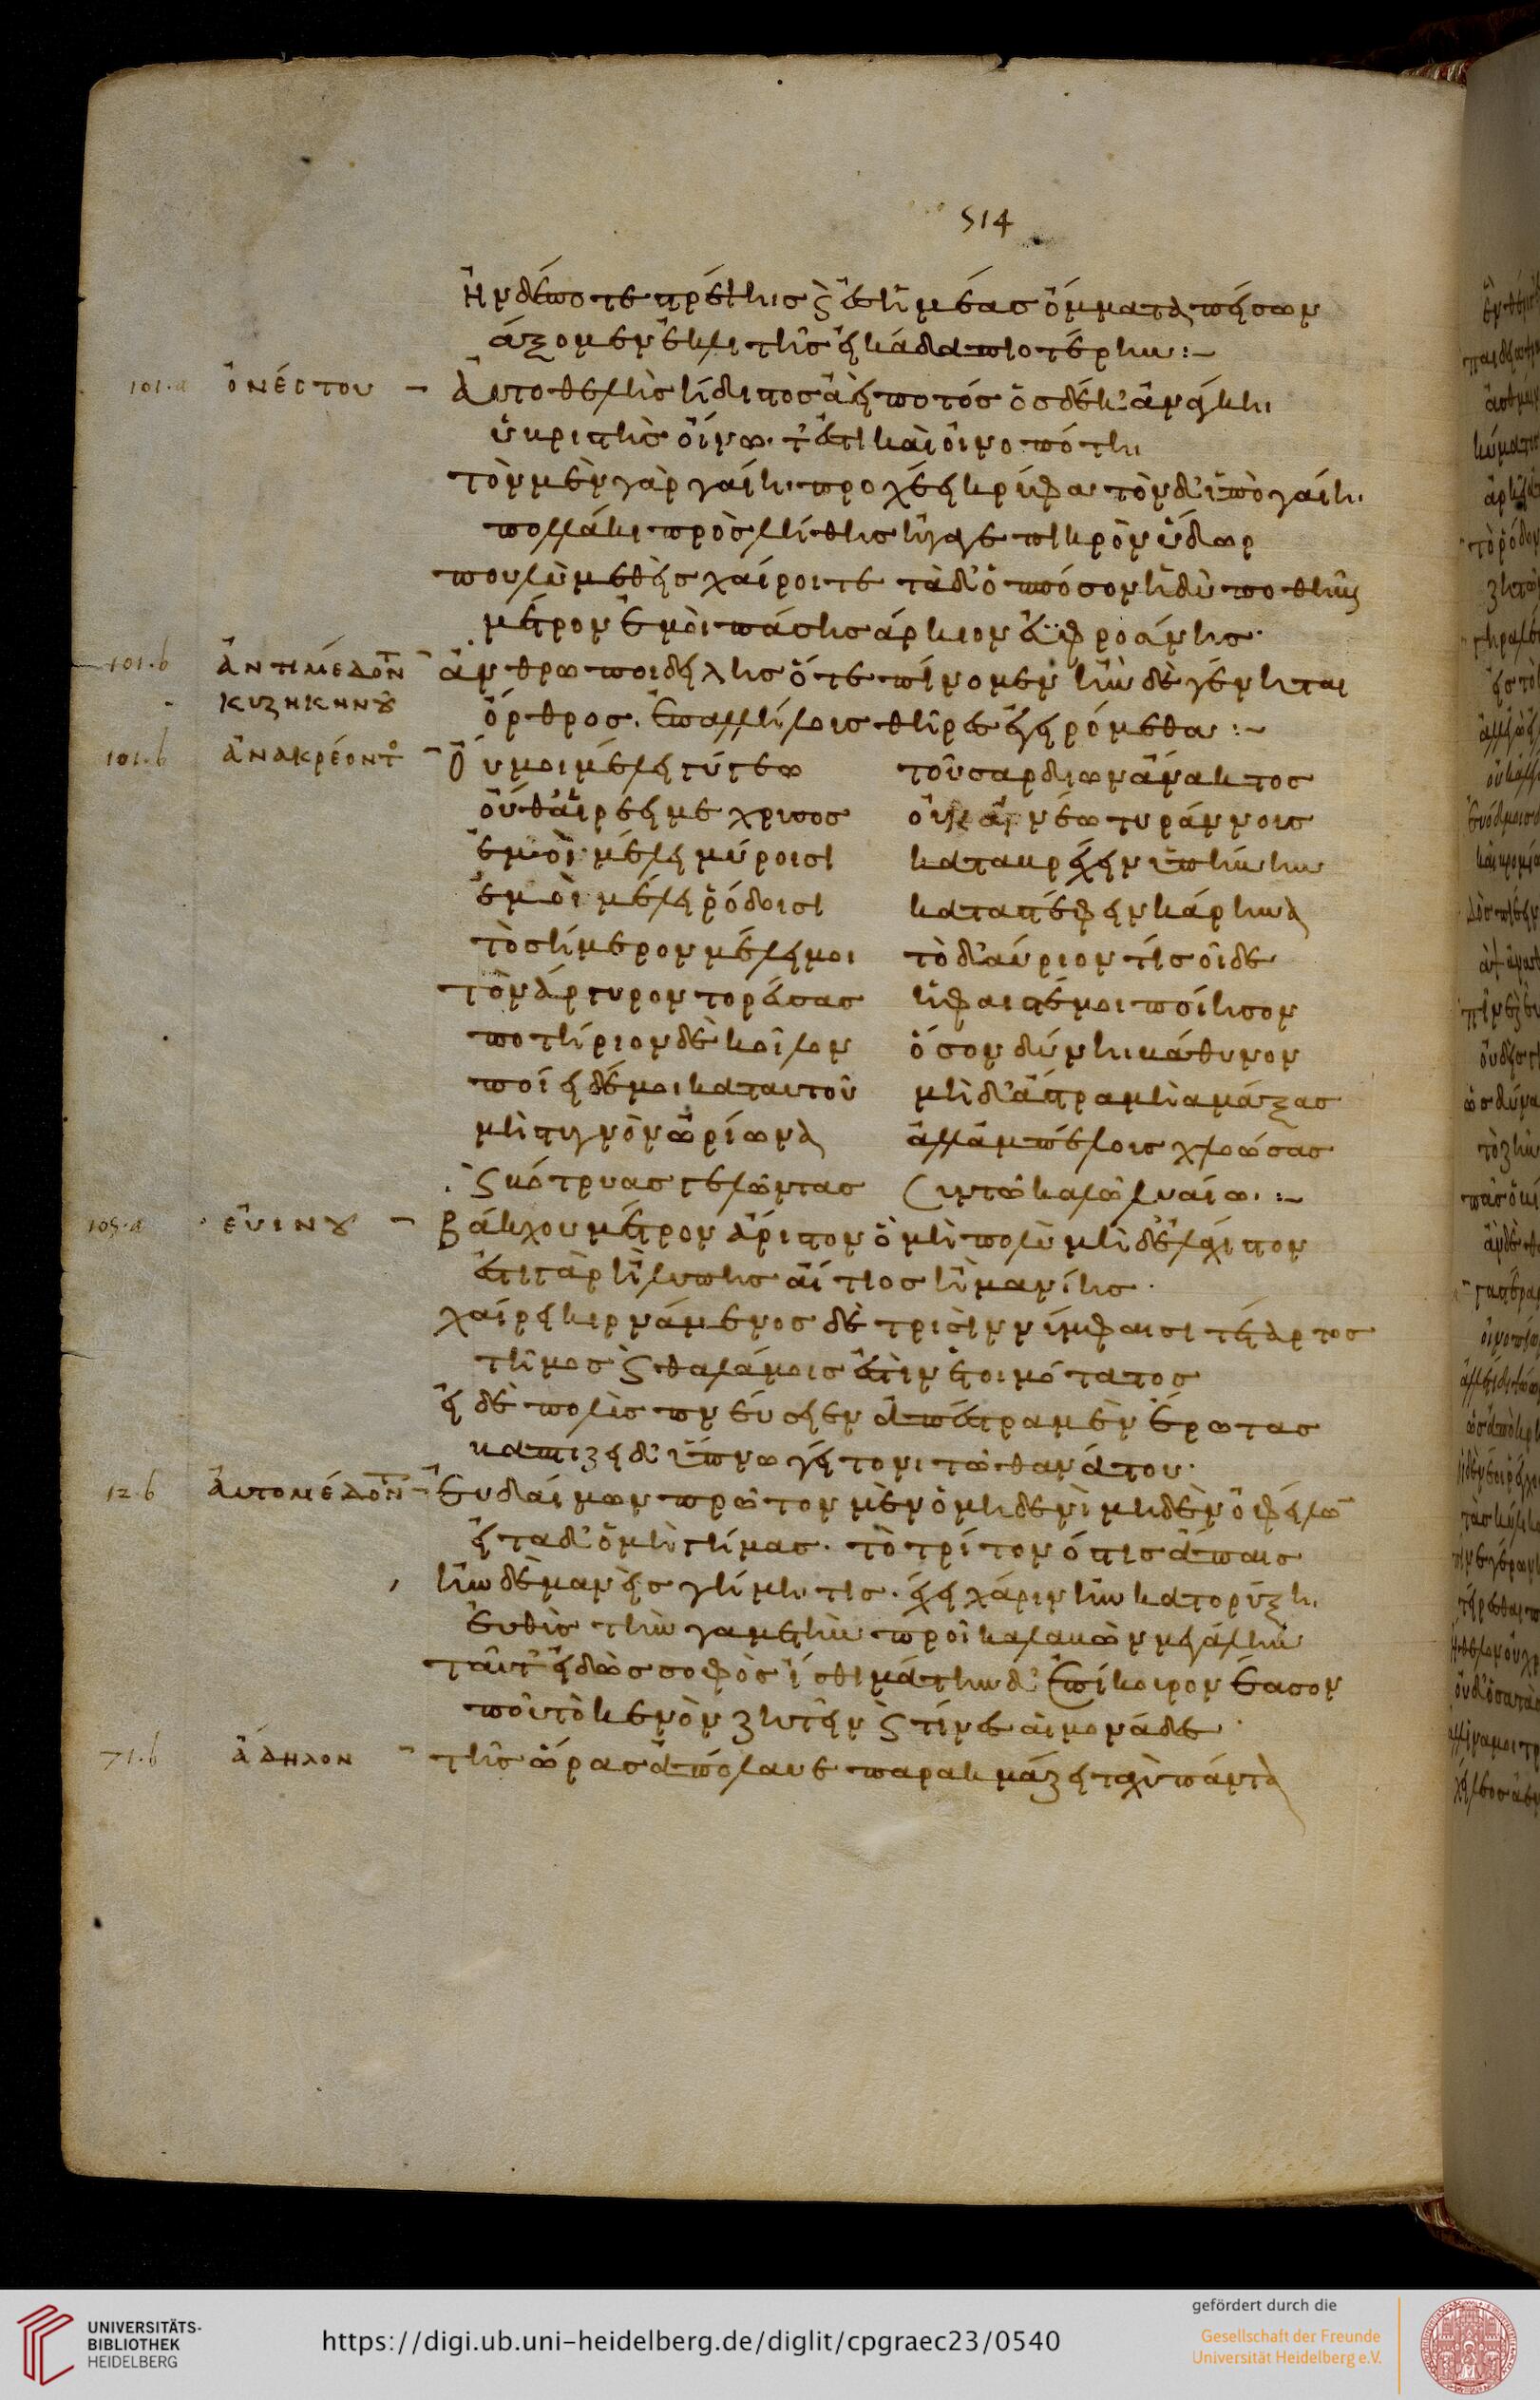 514
ἢν δέ ποτε πρήξηις ἐς ἐμέας ὄμματα πείσων
ἄξομεν ἐκ λιτῆς εἰκάδα πιοτέρην:~
101·a ὀνέστου – Αὐτοθελὴς ἥδιστος ἀεὶ ποτός ὃς δέ κ' ἀνάγκηι
ὑβριστὴς οἴνωι τ' ἐστὶ καὶ οἰνοπότηι
τὸν μὲν γὰρ γαίηι προχέει κρύφα τὸν δ' ὑπὸ γαίηι
πολλάκι πρὸς λήθης ἤγαγε πικρὸν ὕδωρ
πουλὺ μεθεῖς χαίροιτε τὰ δ' ὁπόσον ἡδὺ ποθῆναι
μέτρον ἐμοὶ πάσης ἄρκιον εὐφροσύνης·
101·b ἀντιμέδοντ – ἄνθρωποι δείλης ὅτε πίνομεν ἢν δὲ γένηται
κυζηκηνοῦ ὄρθρος· ἐπ' ἀλλήλοις θῆρες ἐγειρόμεθα:~
101·b ἀνακρέοντο – Οὔ μοι μέλει γύγεω τοῦ σαρδίων ἄνακτος
οὔθ' αἱρέει με χρυσος οὐκ αἰνέω τυράννοις
ἐμοὶ μέλει μύροισι καταβρέχειν ὑπήνην
ἐμοὶ μέλει ῥόδοισι καταστέφειν κάρηνα
τὸ σήμερον μέλει μοι τὸ δ' αὔριον τίς οἶδε
τὸν ἄργυρον τορεύσας ἥφαιστέ μοι ποίησον
ποτήριον δὲ κοῖλον ὅσον δύνηι βάθυνον
ποίει δέ μοι κατ' αυτοῦ μὴ δ' ἄστρα μὴ ἁμάξας
μὴ στυγνὸν ὠρίωνα ἀλλ' ἀμπέλοις χλοώσας
καὶ βότρυας γελῶντας σὺν τῶ καλῶ λυαίω:~
105·a εὐίνου – Βάκχου μέτρον ἄριστον ὃ μὴ πολὺ μὴ δ' ἐλάχιστον
ἔστι γὰρ ἢ λύπης αἴτιος ἢ μανίης·
χαίρει κιρνάμενος δὲ τρισὶν νύμφαισι τέταρτος
τῆμος καὶ θαλάμοις ἐστὶν ἑτοιμότατος
εἰ δὲ πολὺς πνεύσειεν ἀπέστραπται μὲν ἔρωτας
βαπτίζει δ' ὕπνω γείτονι τῶ θανάτου·
12·b ἀυτομέδοντ – Εὐδαίμων πρῶτον μὲν ὁ μηδενὶ μηδὲν ὀφείλων
εἶτα δ' ὁ μὴ γήμας· τὸ τρίτον ὅστις ἄπαις
ἢν δὲ μανεὶς γήμηι τις· ἔχει χάριν ἢν κατορύξηι
εὐθὺς τὴν γαμετὴν προῖκα λαβὼν μεγάλην
ταῦτ' εἰδὼς σοφὸς ἴσθι μάτην δ' ἐπίκουρον ἔασον
ποῦ τὸ κενὸν ζητεῖν καὶ τίνες αἱ μονάδες·
71·b ἄδηλον – τῆς ὥρας ἀπόλαυε παρακμάζει ταχὺ πάντα
UNIVERSITÄTS-
BIBLIOTHEK
HEIDELBERG
https://digi.ub.uni-heidelberg.de/diglit/cpgraec23/0540
gefördert durch die
Gesellschaft der Freunde
Universität Heidelberg e.V.